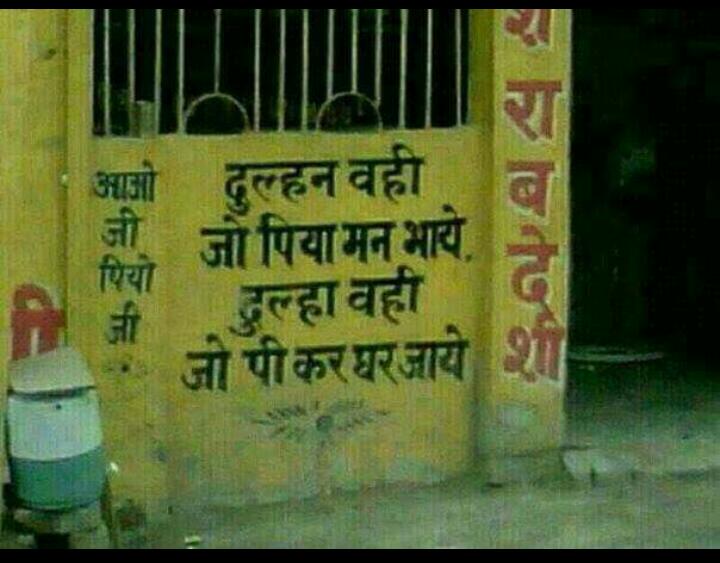 आओ
जी
पियो
जी
दुल्हन वही
जो पिया मन भाये.
दुल्हा वही
जो पी कर घर जाये
श
रा
ब
दे
शी